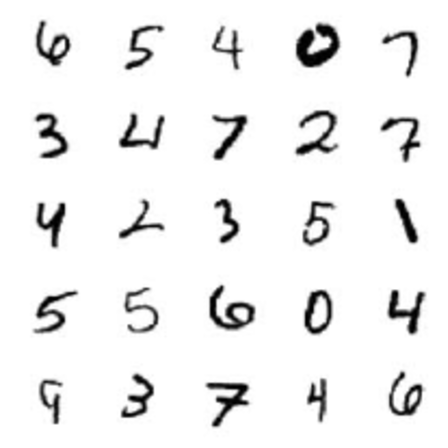 6 5 4 0 7
3 4 7 2 7
4 2 3 5 1
5 5 6 0 4
9 3 7 4 6